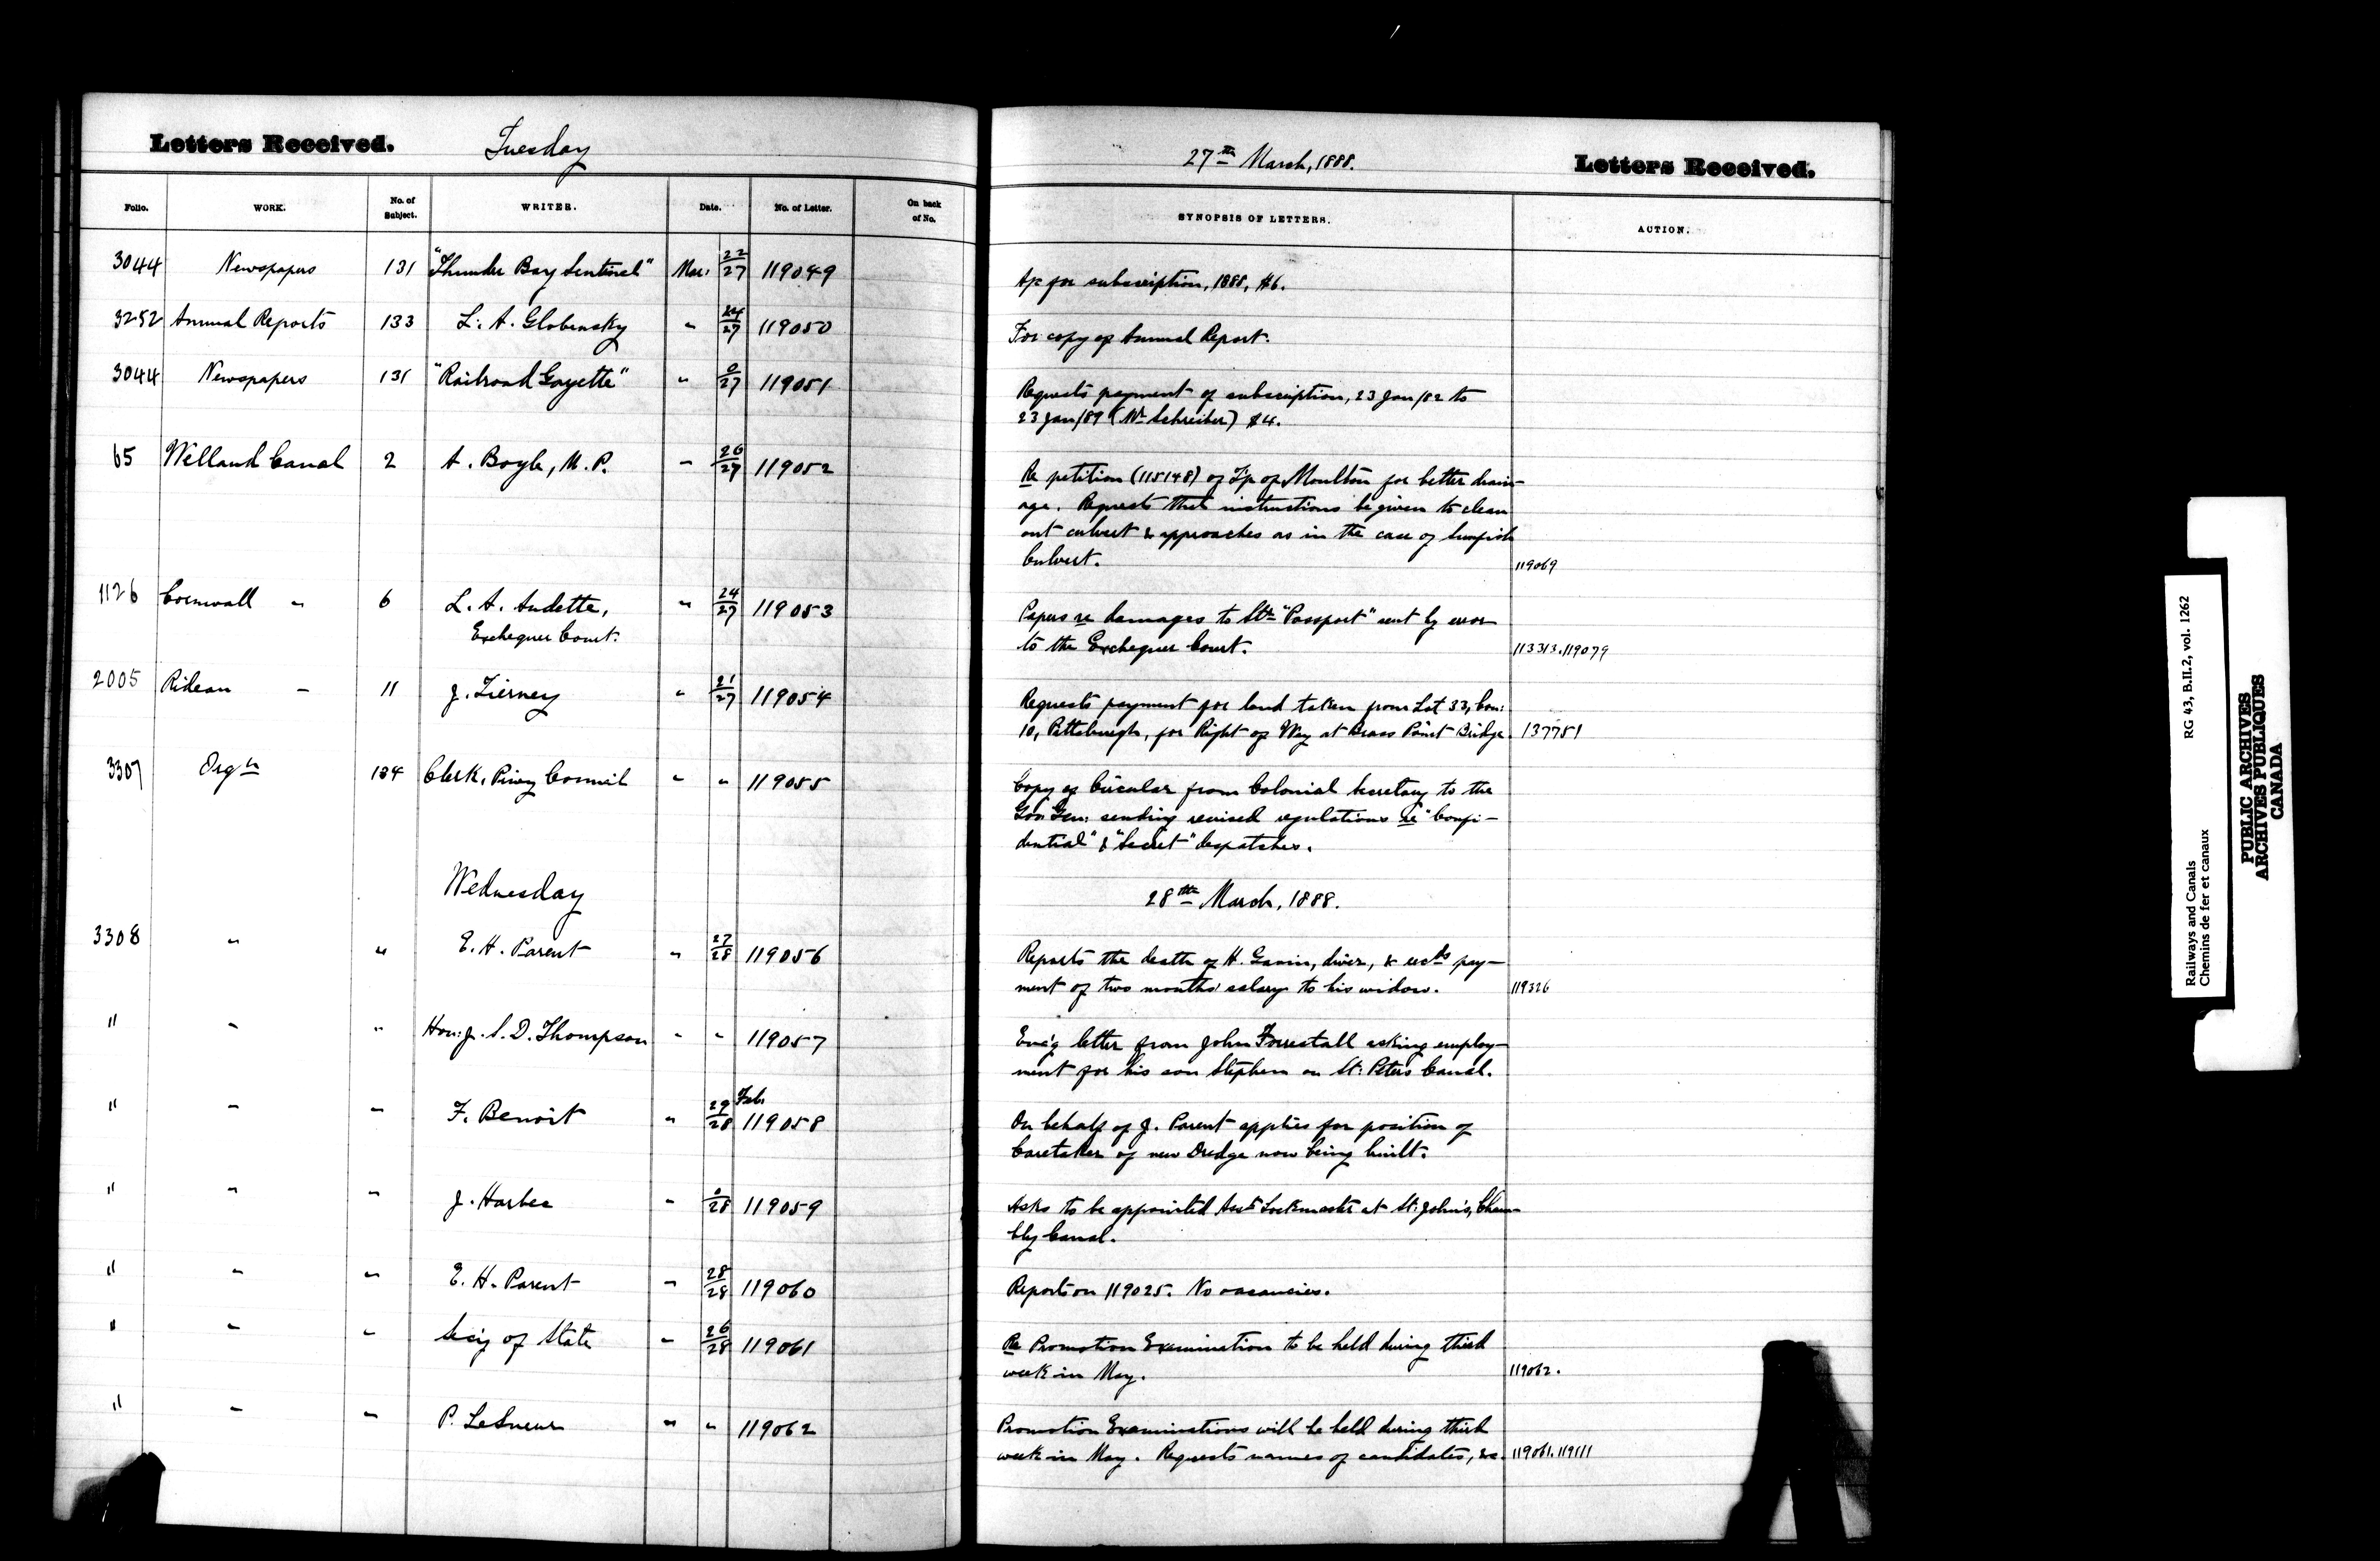 Letters Received. Tuesday 27th March, 1888. Letters Received.
Folio. WORK. No. of Subject. WRITER. Date. No. of Letter. On back of No. SYNOPSIS OF LETTERS. ACTION.
3044 Newspapers 131 "Thunder Bay Sentinel" Mar: 22/27 119049 A/c for subscription, 1888, $6.
3252 Annual Reports 133 L. A. Globensky " 24/27 119050 For copy of Annual Report.
3044 Newspapers 131 "Railroad Gazette" " 0/27 119051 Requests payment of subscription, 23 Jan/82 to
23 Jan/89 (Mr Schreiber) $4.
65 Welland Canal 2 A. Boyle, M.P. " 26/27 119052 Re petition (115148) of T'p of Moulton for better drain-
age. Requests that instructions be given to clean
out culvert & approaches as in the case of Sunfish
Culvert. 119069
1126 Cornwall " 6 L. A. Audette, " 24/27 119053 Papers re damages to Str "Passport" sent by error
Exchequer Court. to the Exchequer Court. 113313.119079
2005 Rideau " 11 J. Tierney " 21/27 119054 Requests payment for land taken from Lot 33, Con:
10, Pittsburgh, for Right of Way at Brass Point Bridge. 137751
3307 Orgn 134 Clerk, Privy Council " " 119055 Copy of Circular from Colonial Secretary to the
Gov: Gen: sending revised regulations re "Confi-
dential" & "Secret" despatches.
Wednesday 28th March, 1888.
3308 " " E. H. Parent " 27/28 119056 Reports the death of H. Gavin, diver, & recds pay-
ment of two months' salary to his widow. 119326
" " " Hon: J. S. D. Thompson " " 119057 Enc'g letter from John Forrestall asking employ-
ment for his son Stephen on St: Peters Canal.
" " " F. Benoit " 29 Feb./28 119058 On behalf of J. Parent applies for position of
Caretaker of new Dredge now being built.
" " " J. Harbec " 0/28 119059 Asks to be appointed Asst Lockmaster at St: John's, Cham-
bly Canal.
" " " E. H. Parent " 28/28 119060 Report on 119025. No vacancies.
" " " Sec'y of State " 26/28 119061 Re Promotion Examination to be held during third
week in May. 119062.
" " " P. LeSueur " " 119062 Promotion Examinations will be held during third
week in May. Requests names of candidates, &c. 119061.119111
Railways and Canals RG 43, B.II.2, vol. 1262
Chemins de fer et canaux
PUBLIC ARCHIVES
ARCHIVES PUBLIQUES
CANADA